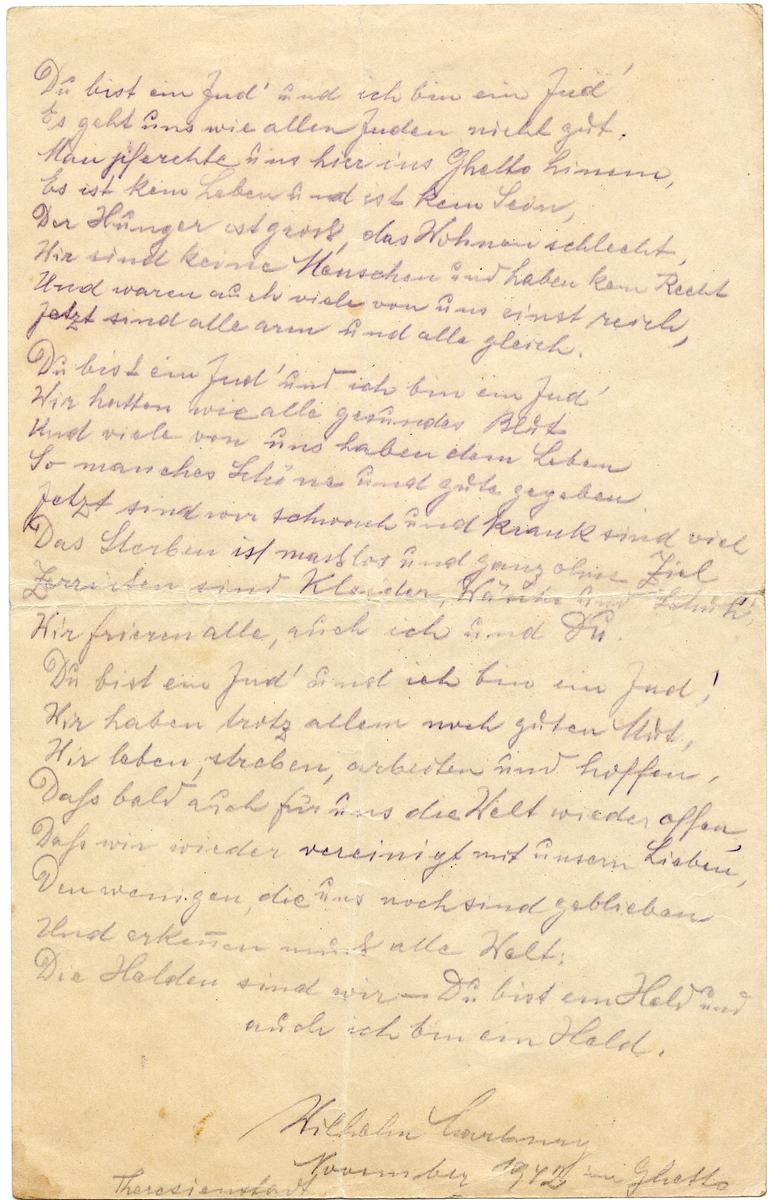 Du bist ein Jud' und ich bin ein Jud'
Es geht uns wie allen Juden nicht gut.
Man pferchte uns hier ins Ghetto hinein,
Es ist kein Leben und ist kein Sein,
Der Hunger ist gross, das Wohnen schlecht,
Wir sind keine Menschen und haben kein Recht
Und waren auch viele von uns einst reich,
Jetzt sind alle arm und alle gleich.
Du bist ein Jud' und ich bin ein Jud'
Wir hatten wie alle gesundes Blut
Und viele von uns haben dem Leben
So manches Schöne und gute gegeben
Jetzt sind wir schwach und krank sind viel
Das Sterben ist masslos und ganz ohne Ziel
Zerrissen sind Kleider, Wäsche und Schuh',
Wir frieren alle, auch ich und Du.
Du bist ein Jud' und ich bin ein Jud'!
Wir haben trotz allem noch guten Mut,
Wir leben, streben, arbeiten und hoffen,
Dass bald auch für uns die Welt wieder offen,
Dass wir wieder vereinigt mit unsern Lieben,
Den wenigen, die uns noch sind geblieben
Und erkeñen muss alle Welt:
Die Helden sind wir – Du bist ein Held und
auch ich bin ein Held.
Wilhelm
November im Ghetto
Theresienstadt